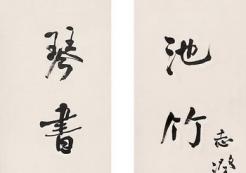 池竹
琴書
志